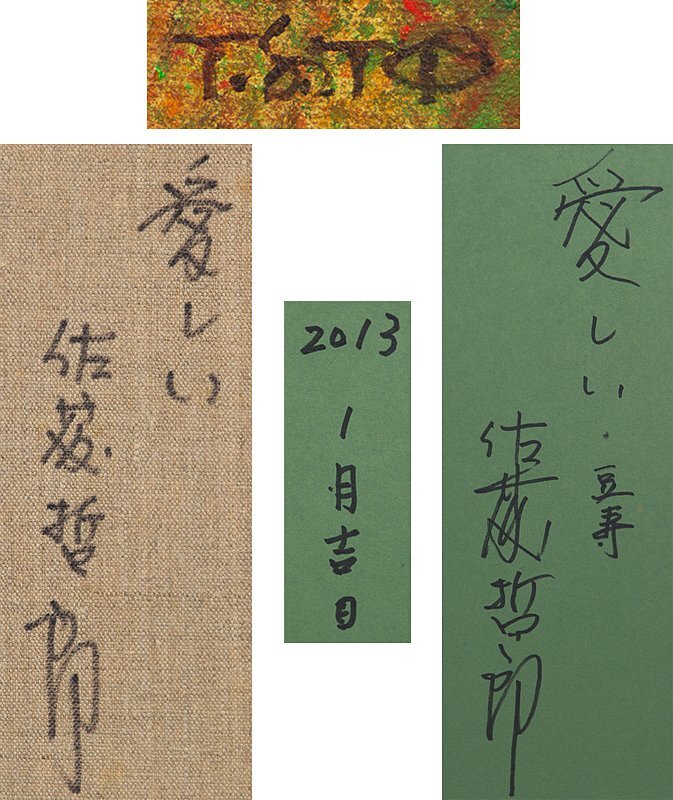 T.SaTO
愛しい
佐藤哲郎
2013
1月吉日
愛しい・豆寿
佐藤哲郎